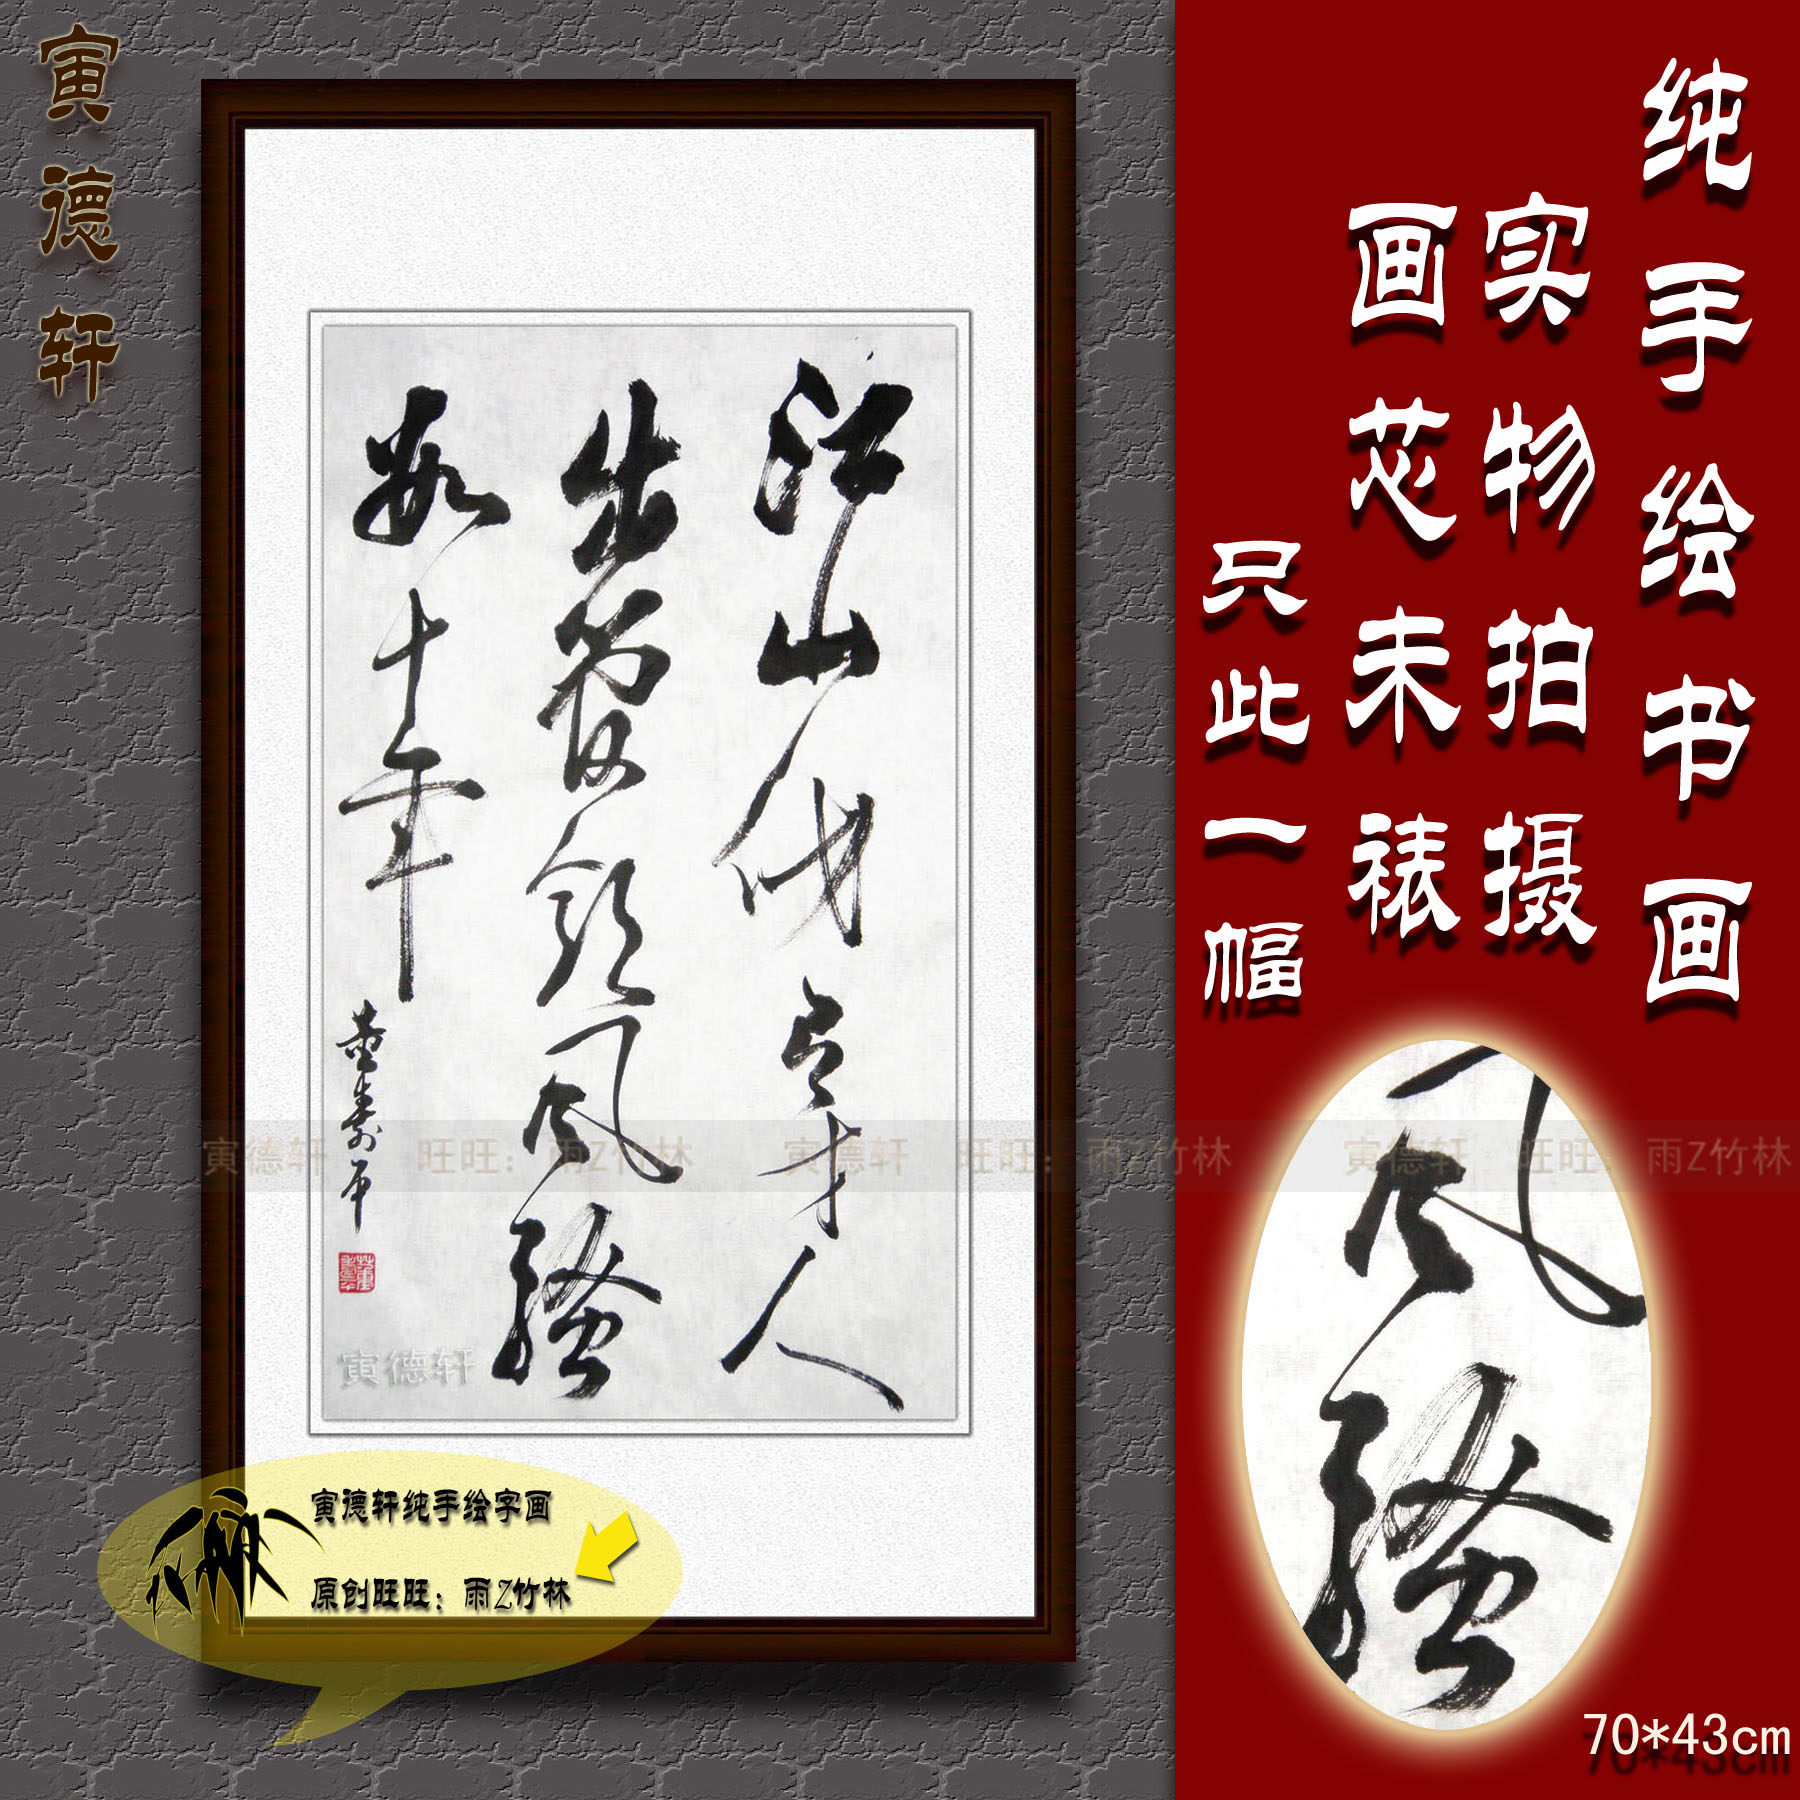 寅德轩
纯手绘书画
实物拍摄
画芯未裱
只此一幅
江山代有才人
出管领风骚
数十年
董寿平
寅德轩
寅德轩 旺旺：雨Z竹林 寅德轩 旺旺：雨Z竹林 寅德轩 旺旺：雨Z竹林
风骚
寅德轩纯手绘字画
原创旺旺：雨Z竹林
70*43cm